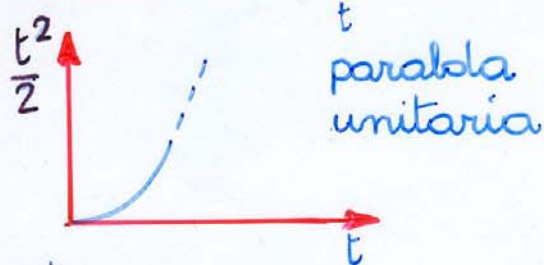 t
t²/2
parabola
unitaria
t